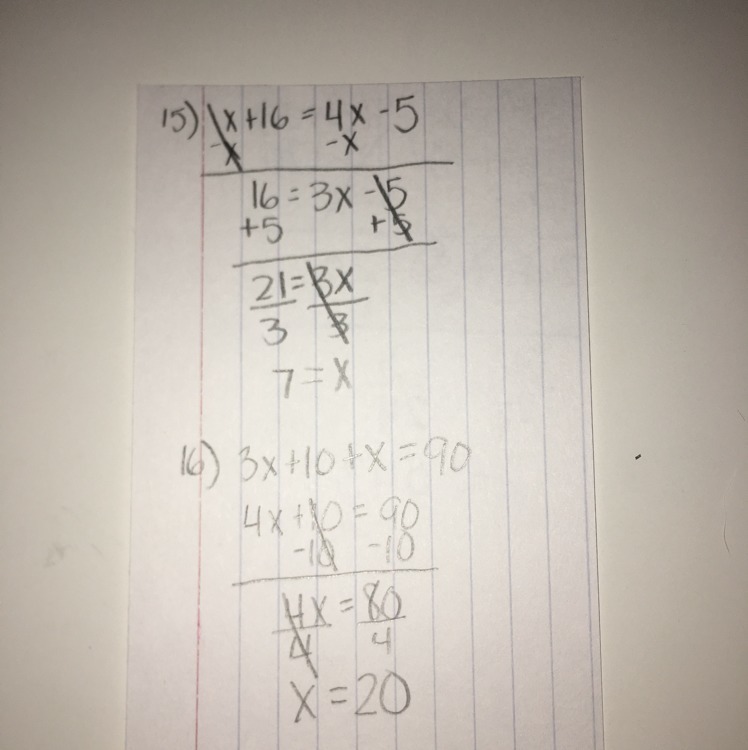 15) x+16 = 4x -5
-x -x
16 = 3x -5
+5 +5
21 = 3x
3 3
7 = x
16) 3x+10+x = 90
4x+10 = 90
-10 -10
4x = 80
4 4
x = 20